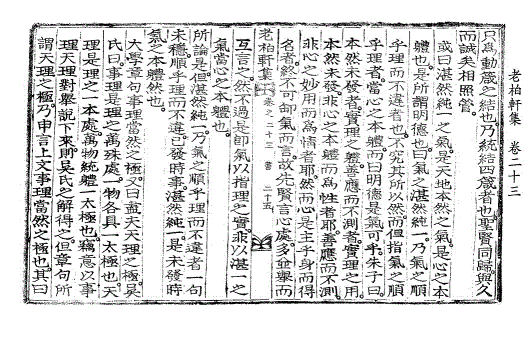 老柏軒集 卷二十三
只爲動箴之結也乃統結四箴者也聖賢同歸與久
而誠矣相照管
或曰湛然純一之氣是天地本然之氣是心之本
體也是所謂明德也曰氣之湛然純一乃氣之順
乎理而不違者也不究其所以然而單指氣之順
乎理者當心之本體而曰明德是氣可乎朱子曰
本然未發者實理之體善應而不測者實理之用
本然未發非心之本體而爲性者耶善應而不測
非心之妙用而爲情者耶然而心是主乎身而得
名者終不可卽氣而言故先賢言心處多並擧而
老柏軒集 卷之二十三 書 二十五
互言之然不過是卽氣以指理之實非以湛一之
氣當心之本體也
所論是但湛然純一乃氣之順乎理而不違者一句
未穩順乎理而不違已發時事湛然純一是未發時
氣之本體然也
大學章句事理當然之極又曰盡夫天理之極吳
氏曰事理是理之萬殊處一物各具一太極也天
理是理之一本處萬物統體一太極也竊意以事
理天理對擧說下來則吳氏之解得之但章句所
謂天理之極乃申言上文事理當然之極也其曰